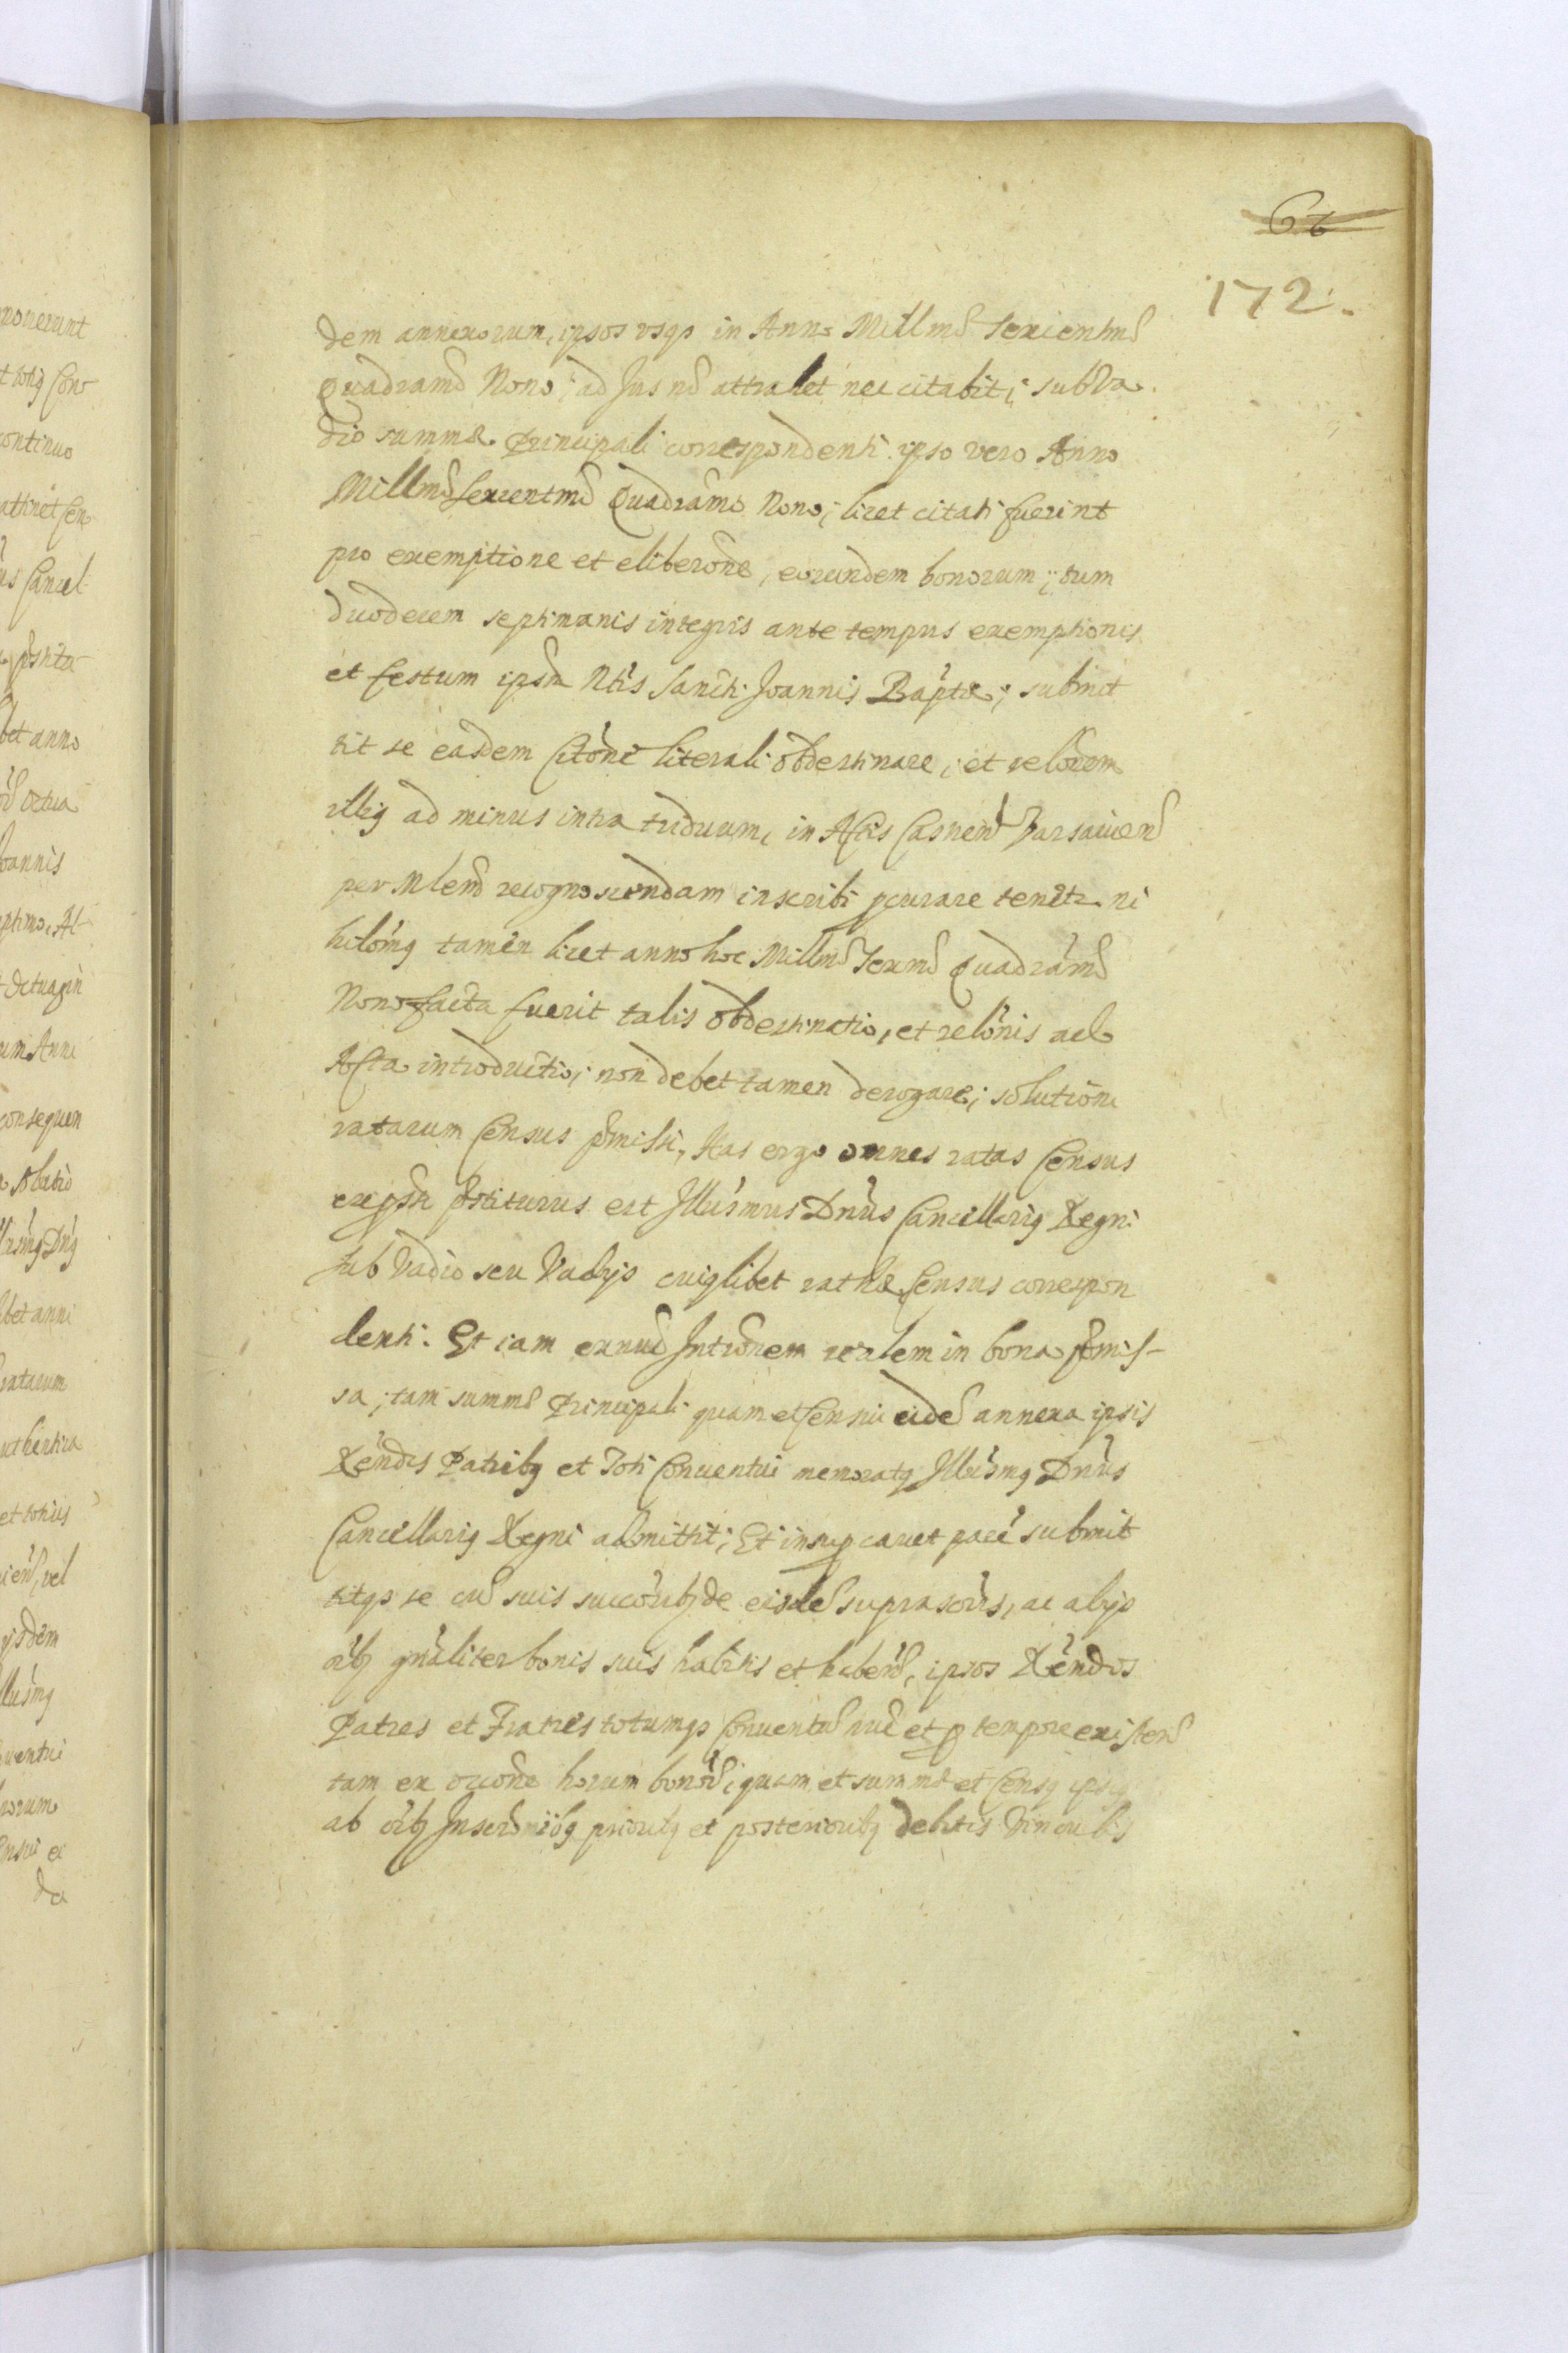 66
172.
dem annexorum, ipsos usqs in Anno Millmo Sexcentmo
Quadramo Nono; ad Jus no attrahet nec citabit; sub Va
dio summæ Principali correspondenti. ipso vero Anno
Millmo Sexcentmo Quadramo Nono; licet citati fuerint
pro exemptione et eliberone, eorundem bonorum; tum
duodecem septimanis integris ante tempus exemptionis
et festum ipsu Ntis Sancti Joannis Baptæ; submit
tit se easdem Citone literali obdestinare; et relonem
illig ad minus intra triduum, in Actis Castren Varsavien
per Mlem recognoscendam inscribi pcurare tenetr. ni
hilomg tamen licet anno hoc Millmo Sexmo Quadramo
Nono facta fuerit talis obdestinatio, et relonis ad
Acta introductio; non debet tamen derogare; solutioni
ratarum Census pmissi, Has ergo omnes ratas Census
expsti pstiturus est Illusmus Dnus Cancellarig Regni
sub Vadio seu Vadijs cuiglibet rathæ Census correspon
denti. Et iam exnuc Intronem realem in bona pmis-
sa; tam summæ Principali quam et Censui eide annexa ipsis
Rendis Patribg et Toti Conventui memoratg Illusmg Dnus
Cancellarig Regni admittit; Et insup cavet pace submit
titqs se cu suis succoribg de eisde suprascris, ac alijs
oibg gnaliter bonis suis habitis et haben, ipsos Rendos
Patres et Fratres totumqs Conventu nuc et p tempore existen
tam ex oione horum bonor; quam et summæ et Censg ipsig
ab oibg Inscronibg prioribg et posterioribg debitis Vinculis
ponerunt
continuo
Cancel
bet anno
octua
oannis
ptimo, Al
consequen
ratarum
et totius
vel
ysdem
llusmg
uentui
do